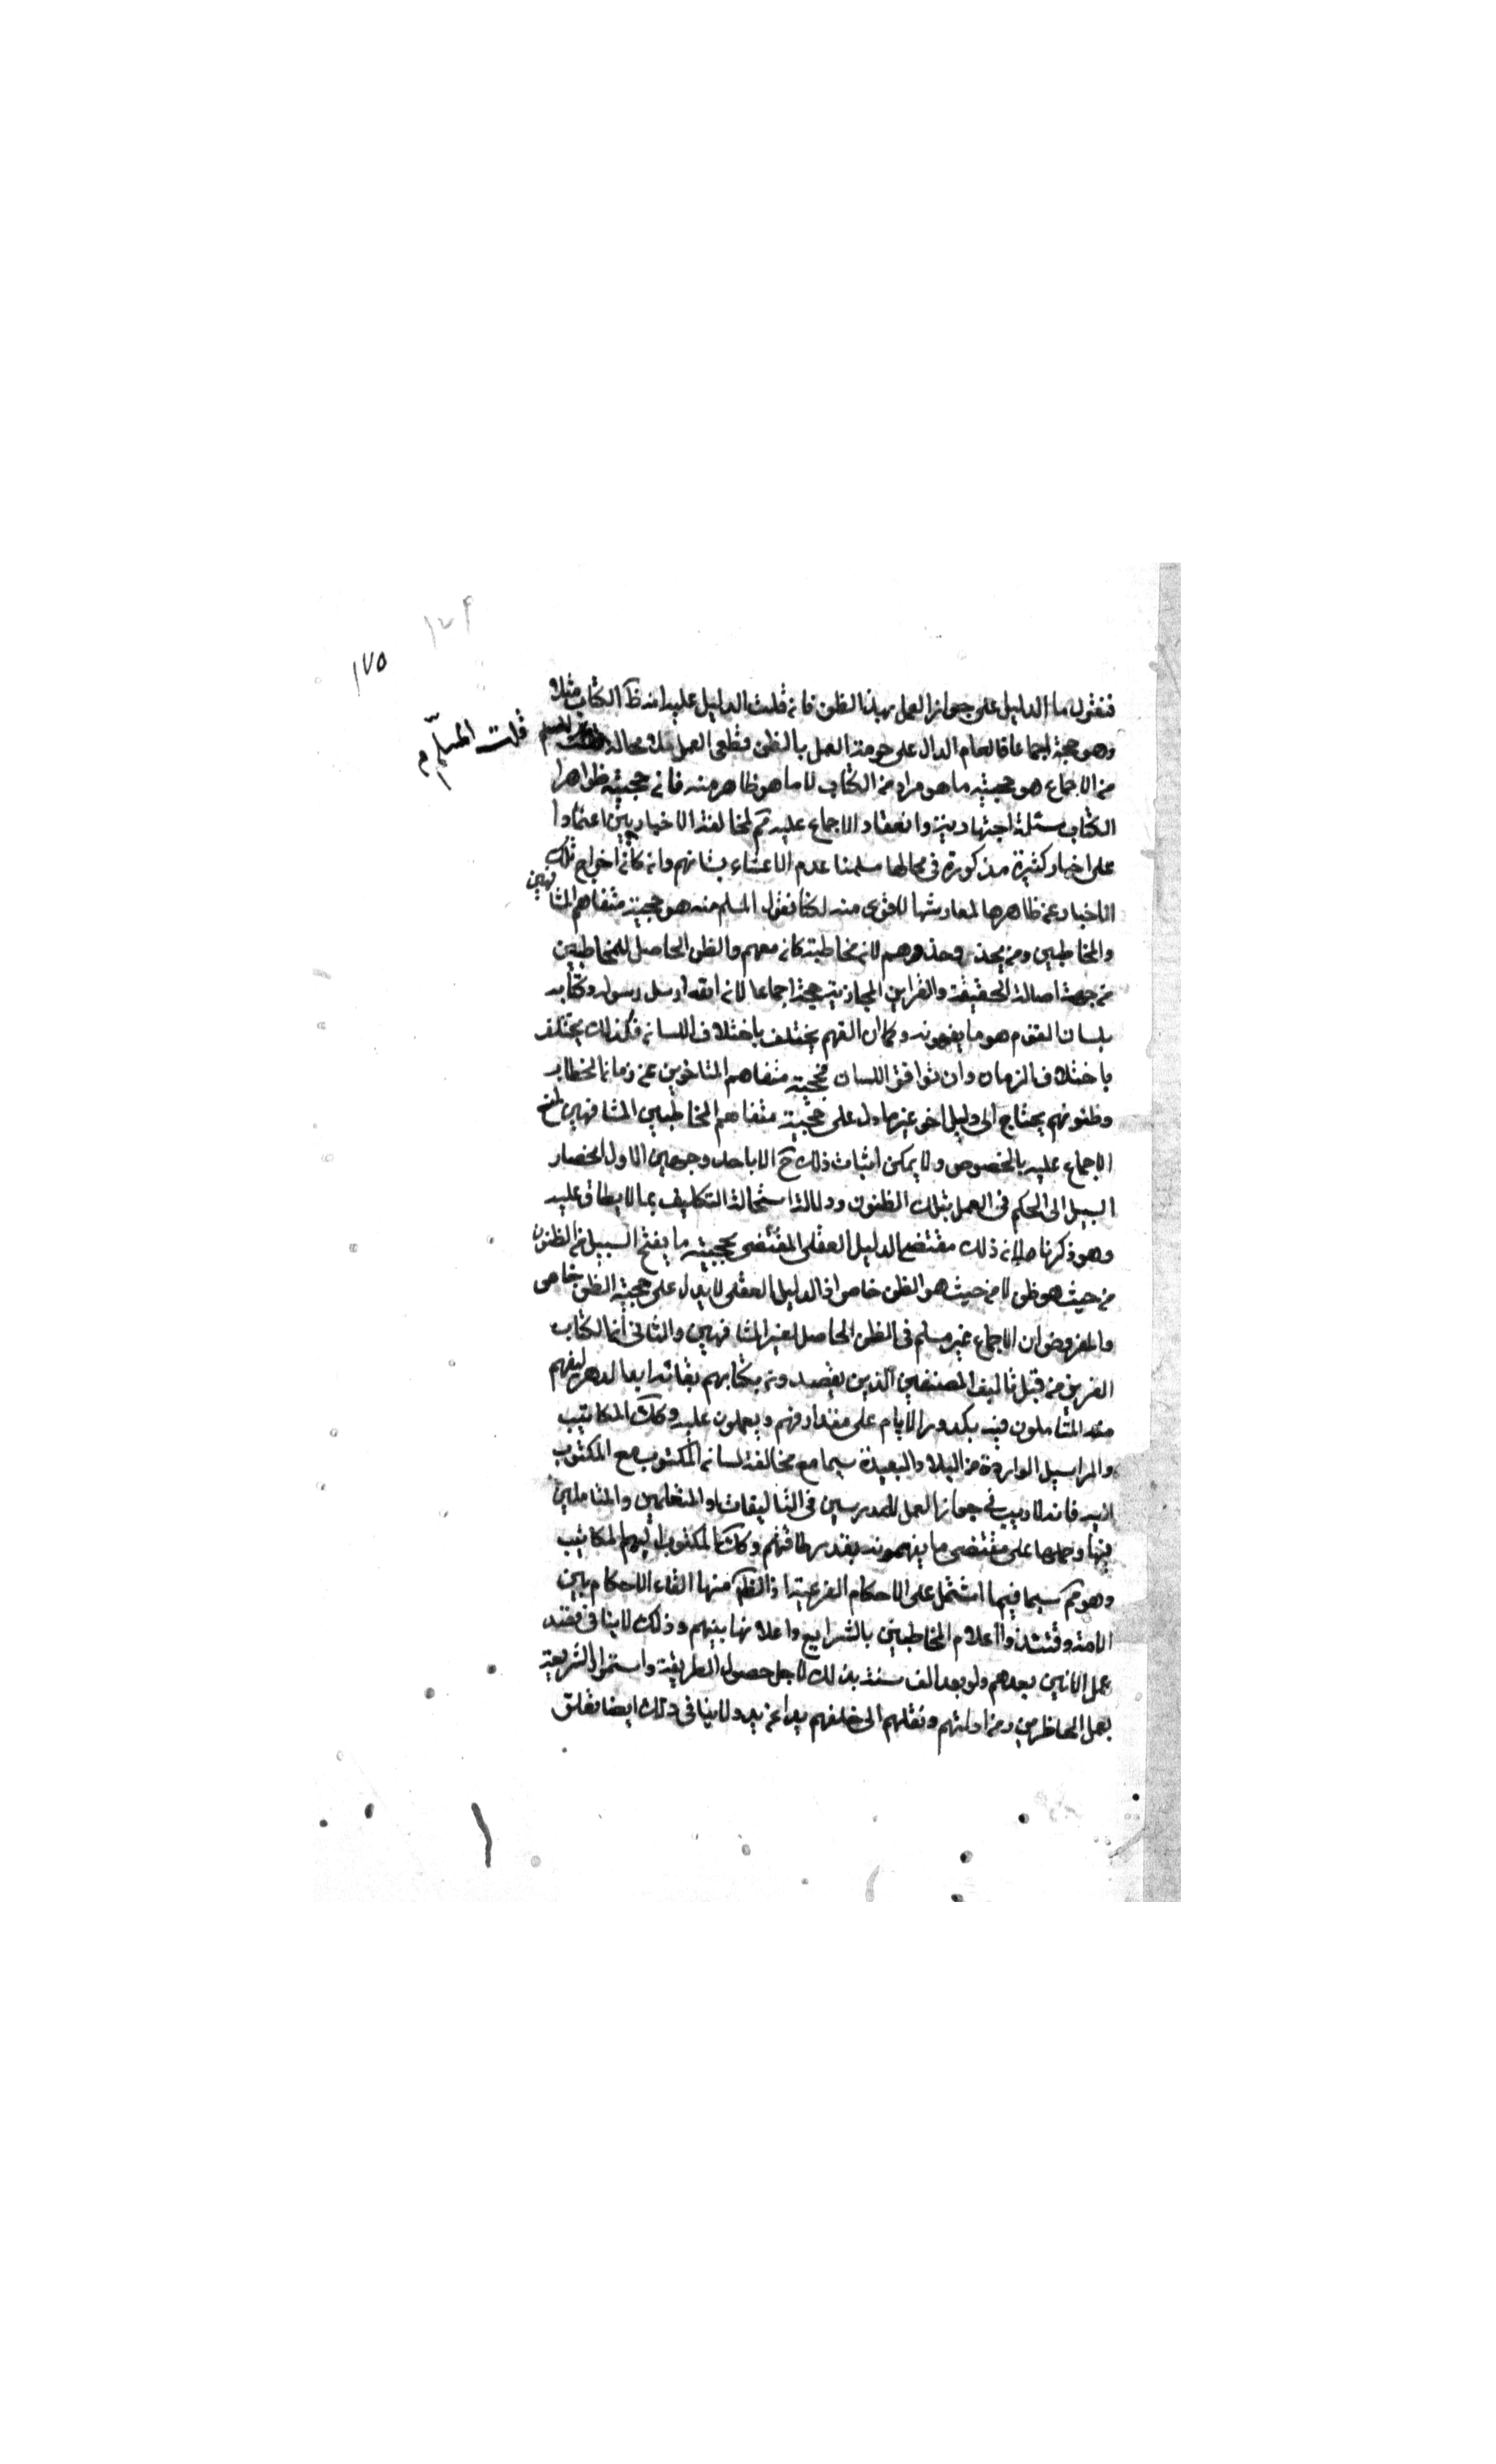 ١٧٥
فنقول ما الدليل على جواز العمل بهذا الظن فان قلت الدليل عليه انه ظ الكتاب مثلا
وهو حجة اجماعا قالعام الدال على حرمة العمل بالظن وقطعى العمل
قلت المسلّم
من الاجماع هو حجيته ما هو مراد من الكتاب لا ما هو ظاهر منه فان حجيته ظواهر ا
الكتاب مسئلة اجتهادية وانعقاد الاجماع عليه مم لمخالفة الاخباريين اعتمادا
على اخبار كثيرة مذكورة فى محالها سلمنا عدم الاعتناء بشانهم وان كان اخراج تلك
الاخبار عن ظاهرها لمعارضتها لاقوى منه لكنا نقول المسلم منه هو حجية متفاهم المشافهين
والمخاطبين ومن يحذو حذوهم لان مخاطبته كان معهم والظن الحاصل للمخاطبين
من جهة اصالة الحقيقة والقراين المجازية حجة اجماعا لان الله ارسل رسوله وكتابه
بلسان القوم هو ما يفهمونه وكما ان الفهم يختلف باختلاف اللسان فكذلك يختلف
باختلاف الزمان وان توافق اللسان فحجية متفاهم المتاخرين عن زمان الخطاب
وظنونهم يحتاج الى دليل اخر غير ما دل على حجية متفاهم المخاطبين المشافهين لمنع
الاجماع عليه بالخصوص ولا يمكن اثبات ذلك ح الا باحد وجهين الاول انحصار
السبيل الى الحكم فى العمل بتلك الظنون ودلالة استحالة التكليف بما لا يطاق عليه
وهو ذكرنا لان ذلك مقتضى الدليل العقلى المقتضى بحجية ما يفتح السبيل من الظنون
من حيث هو ظن لا من حيث هو الظن خاص اذ الدليل العقلى لا يدل على حجية الظن خاص
والمفروض ان الاجماع غير مسلم فى الظن الحاصل لغير المشافهين والثانى ان الكتاب
العزيز من قبيل تاليف المصنفين الذين يقصدون بكتابهم بقائه ابد الدهر ليفهم
منه المتاملون فيه بكدور الايام على مقدار فهم ويعملون عليه وكك المكاتيب
والمراسيل الواردة من البلاد البعيدة سيما مع مخالفة لسان المكتوب مع المكتوب
اليه فانه لا ريب فى جواز العمل للمدرسين فى التاليفات والمتعلمين والمتاملين
فيها وحملها على مقتضى ما يفهمونه بقدر طاقتهم وكك المكتوب اليهم المكاتيب
وهو مم سيما فيما اشتمل على الاحكام الفرعية اذ الظ منها القاء الاحكام بين
الامة وقتئذ واعلام المخاطبين بالشرايع واعلانها بينهم وذلك لا ينافى قصد
عمل الاتين بعدهم ولو بعد الف سنة بذلك لاجل حصول الطريقة واستمرار الشريعة
بعمل الحاظرين ومزاولتهم ونقلهم الى خلفهم يدا عن يد ولا ينافى ذلك ايضا تعلق